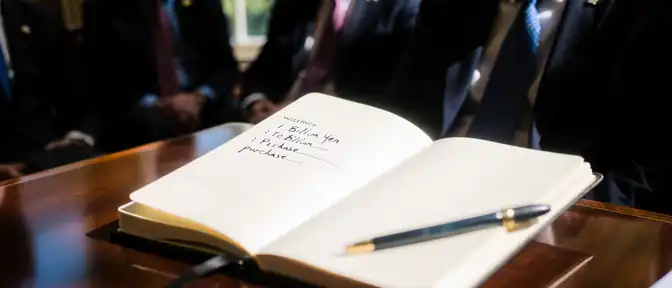 1 Billion Yen
: To Billion
: Purkase
purchase